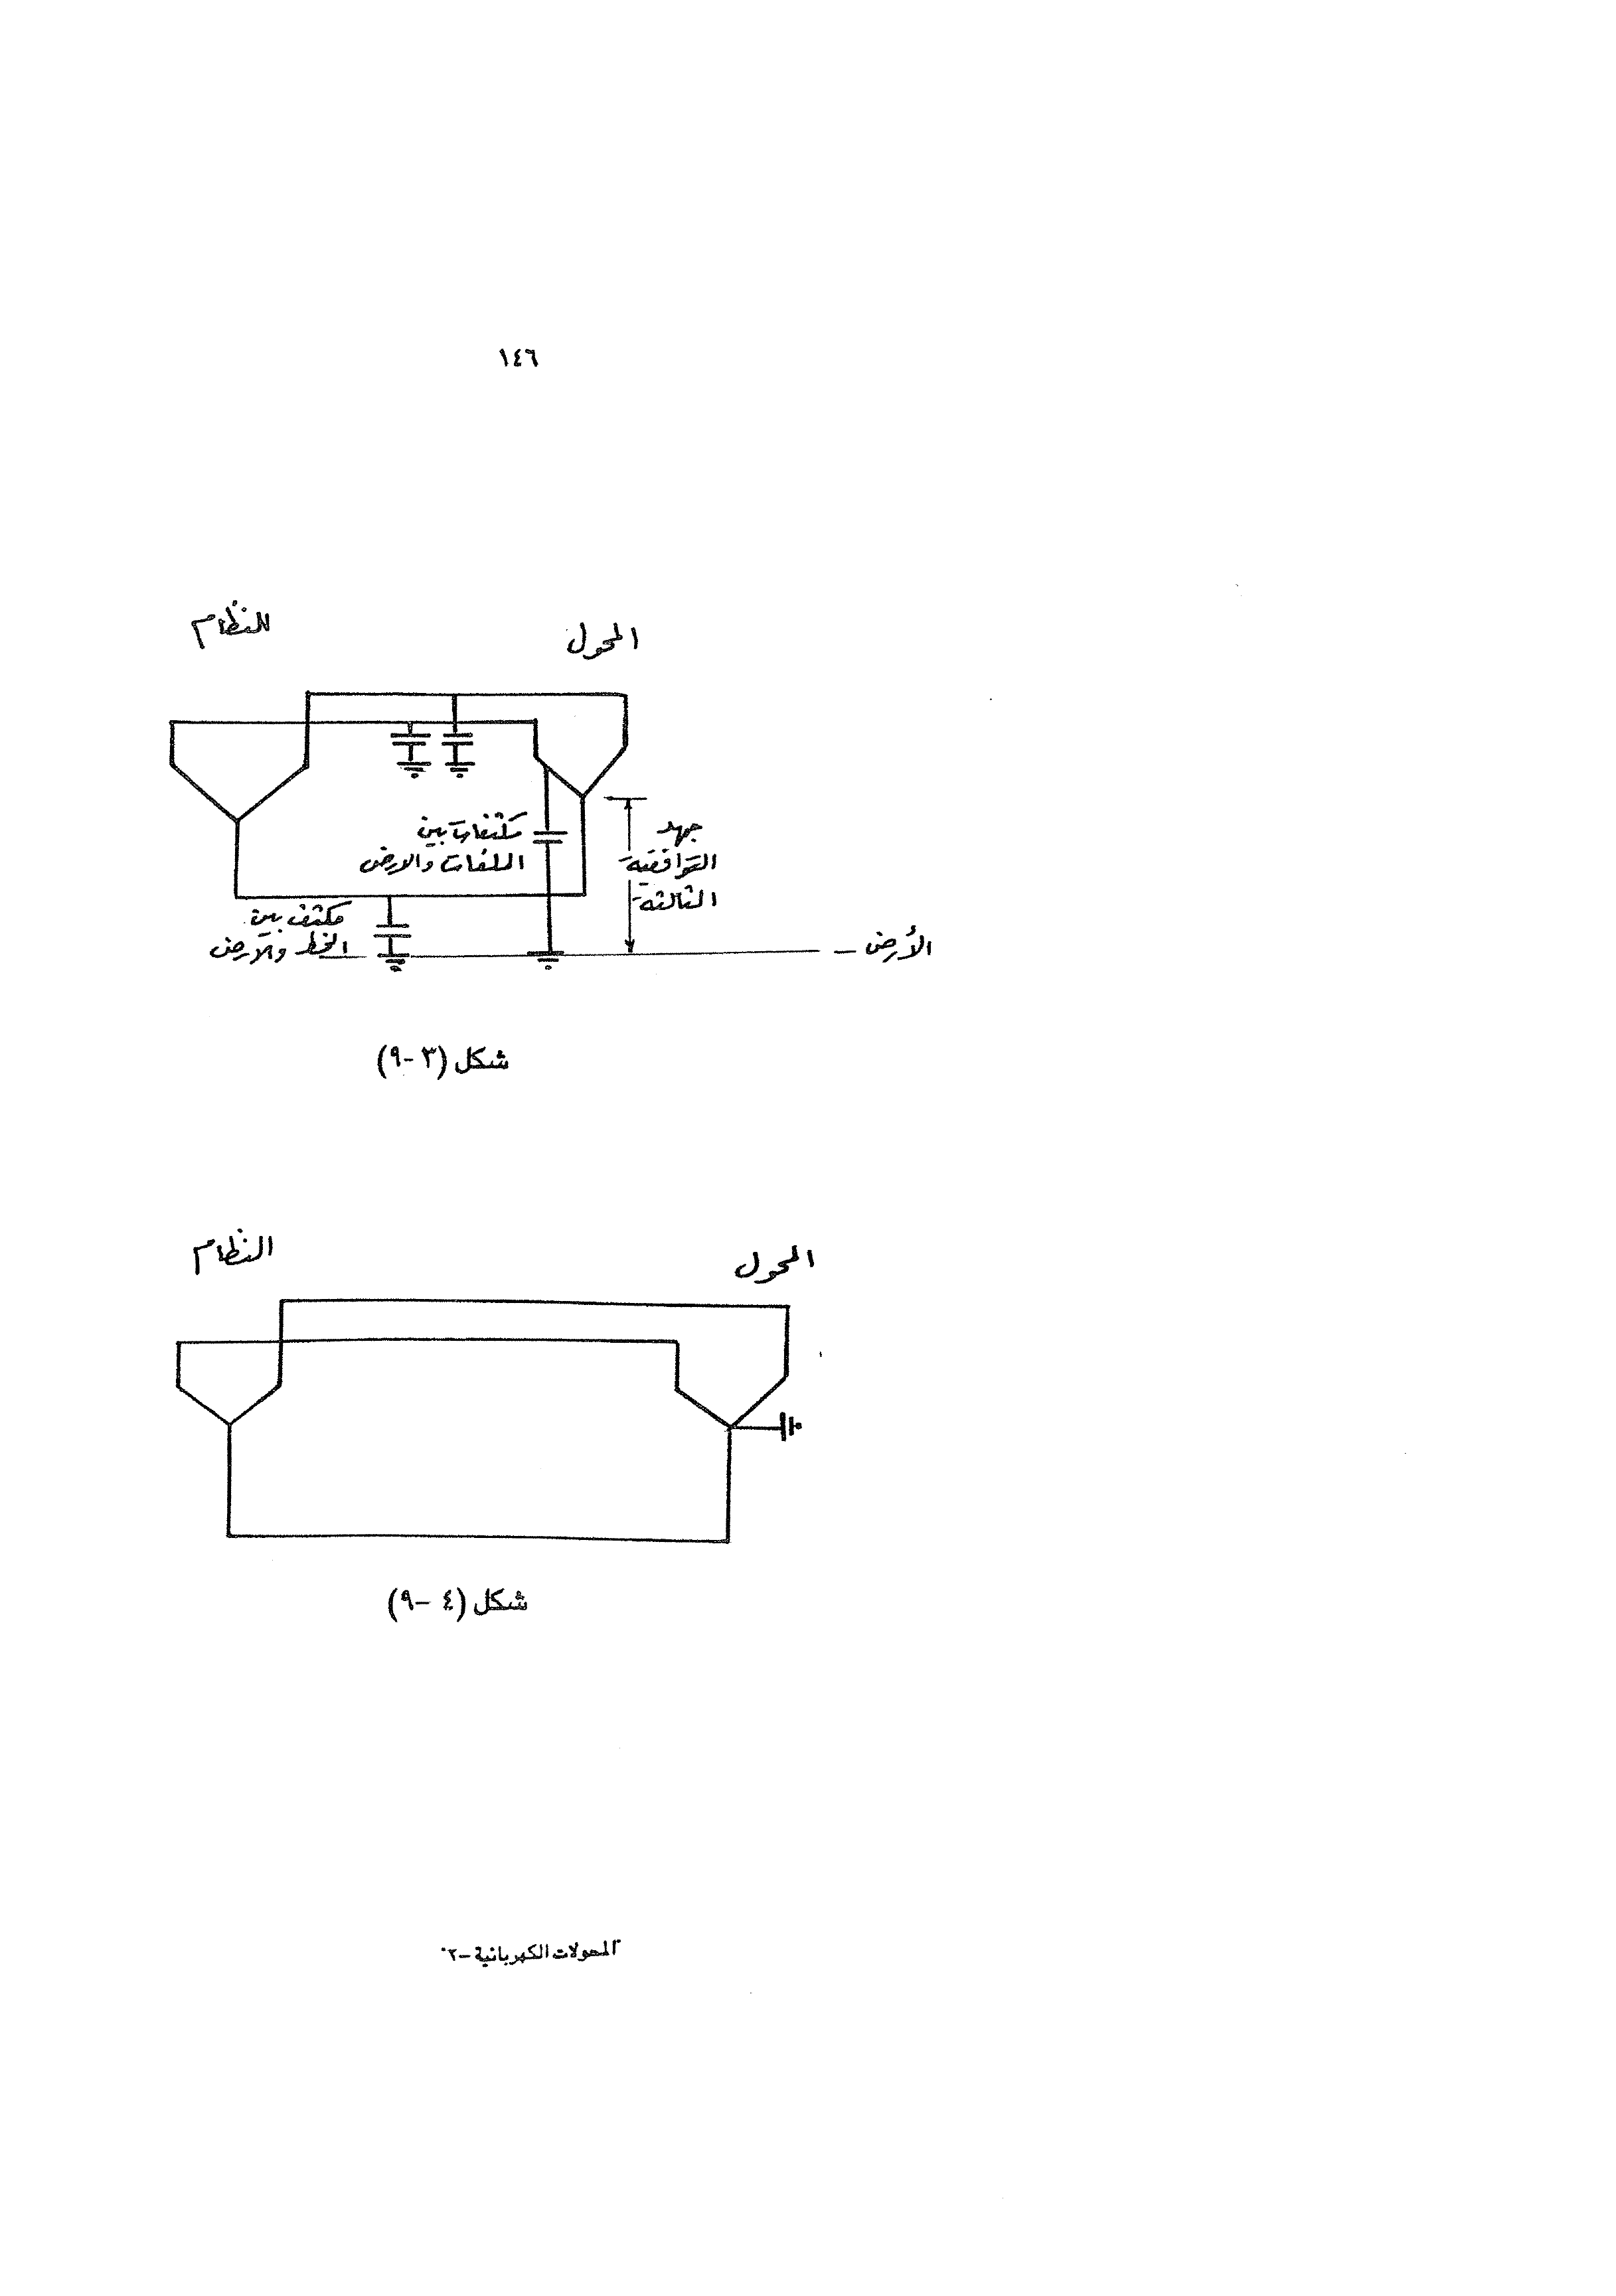 ١٤٦
النظام
المحول
مكثفات بين
اللفات والارض
جهد
التوافقية
الثالثة
مكثف بين
الخط والارض
الأرض
شكل (٣ -٩)
النظام
المحول
شكل (٤ -٩)
المحولات الكهربائية -٢